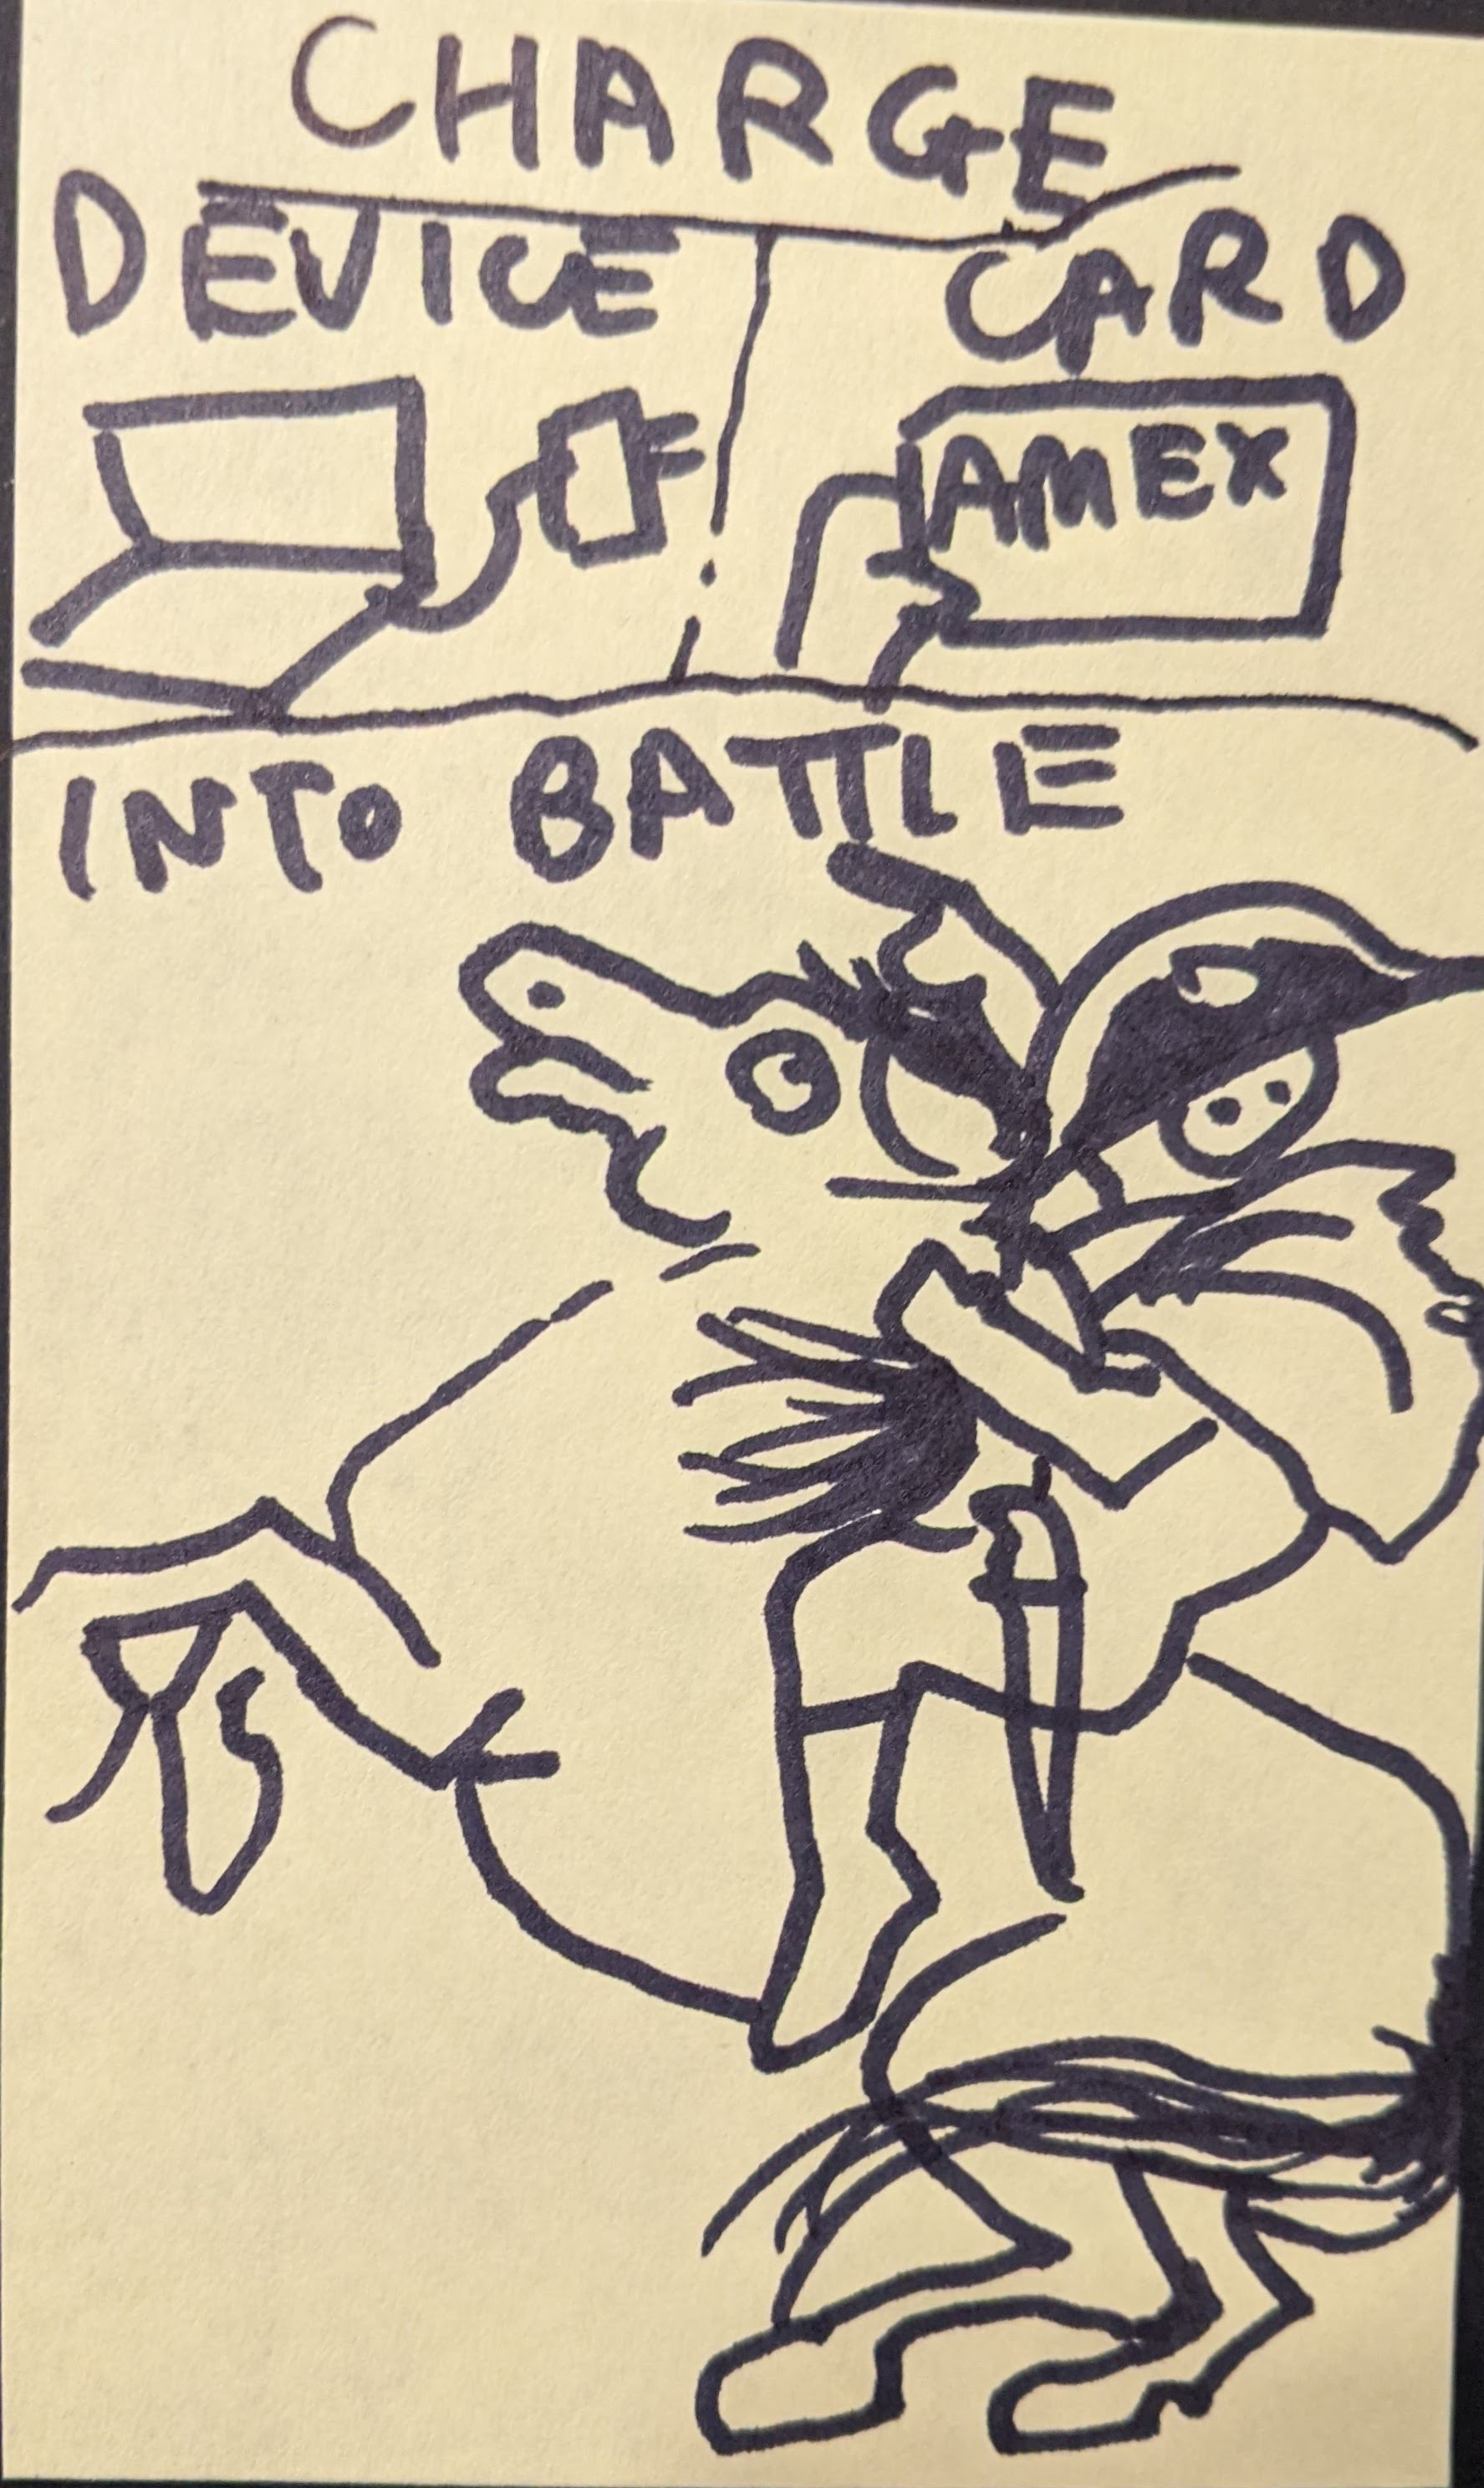 CHARGE
DEVICE
CARD
AMEX
INTO BATTLE